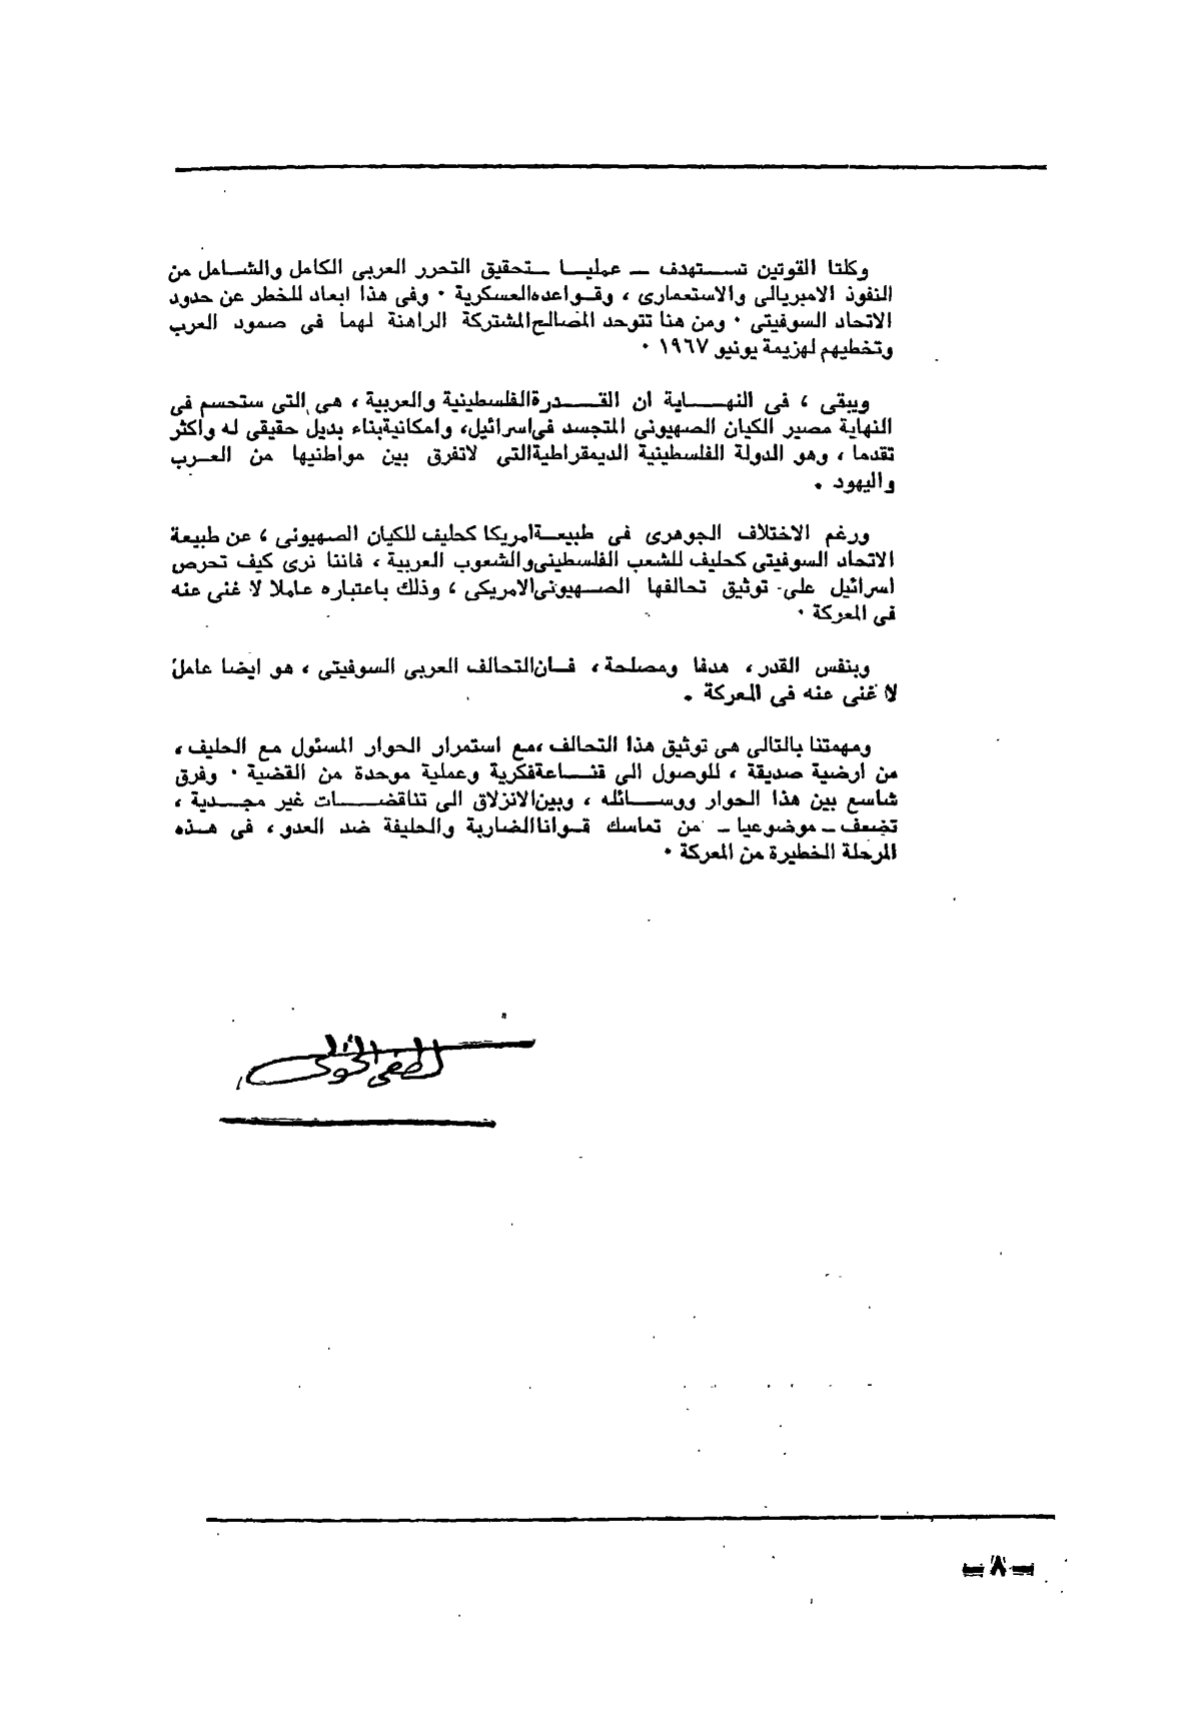 وكلتا القوتين تستهدف ــ عمليا ــ تحقيق التحرر العربى الكامل والشامل من
النفوذ الامبريالى والاستعمارى ، وقواعده العسكرية ٠ وفى هذا ابعاد للخطر عن حدود
الاتحاد السوفيتى ٠ ومن هنا تتوحد المصالح المشتركة الراهنة لهما فى صمود العرب
وتخطيهم لهزيمة يونيو ١٩٦٧ ٠
ويبقى ، فى النهاية ان القدرة الفلسطينية والعربية ، هى التى ستحسم فى
النهاية مصير الكيان الصهيونى المتجسد فى اسرائيل، وامكانية بناء بديل حقيقى له واكثر
تقدما ، وهو الدولة الفلسطينية الديمقراطية التى لاتفرق بين مواطنيها من العرب
واليهود ٠
ورغم الاختلاف الجوهرى فى طبيعة امريكا كحليف للكيان الصهيونى ، عن طبيعة
الاتحاد السوفيتى كحليف للشعب الفلسطينى والشعوب العربية ، فاننا نرى كيف تحرص
اسرائيل على توثيق تحالفها الصهيونى الامريكى ، وذلك باعتباره عاملا لا غنى عنه
فى المعركة ٠
وبنفس القدر ، هدفا ومصلحة ، فان التحالف العربى السوفيتى ، هو ايضا عامل
لا غنى عنه فى المعركة ٠
ومهمتنا بالتالى هى توثيق هذا التحالف ،مع استمرار الحوار المسئول مع الحليف ،
من أرضية صديقة ، للوصول الى قناعة فكرية وعملية موحدة من القضية ٠ وفرق
شاسع بين هذا الحوار ووسائله ، وبين الانزلاق الى تناقضات غير مجدية ،
تضعف ــ موضوعيا ــ من تماسك قوانا الضاربة والحليفة ضد العدو ، فى هذه
المرحلة الخطيرة من المعركة ٠
لطفى الخولى
ـ ٨ ـ